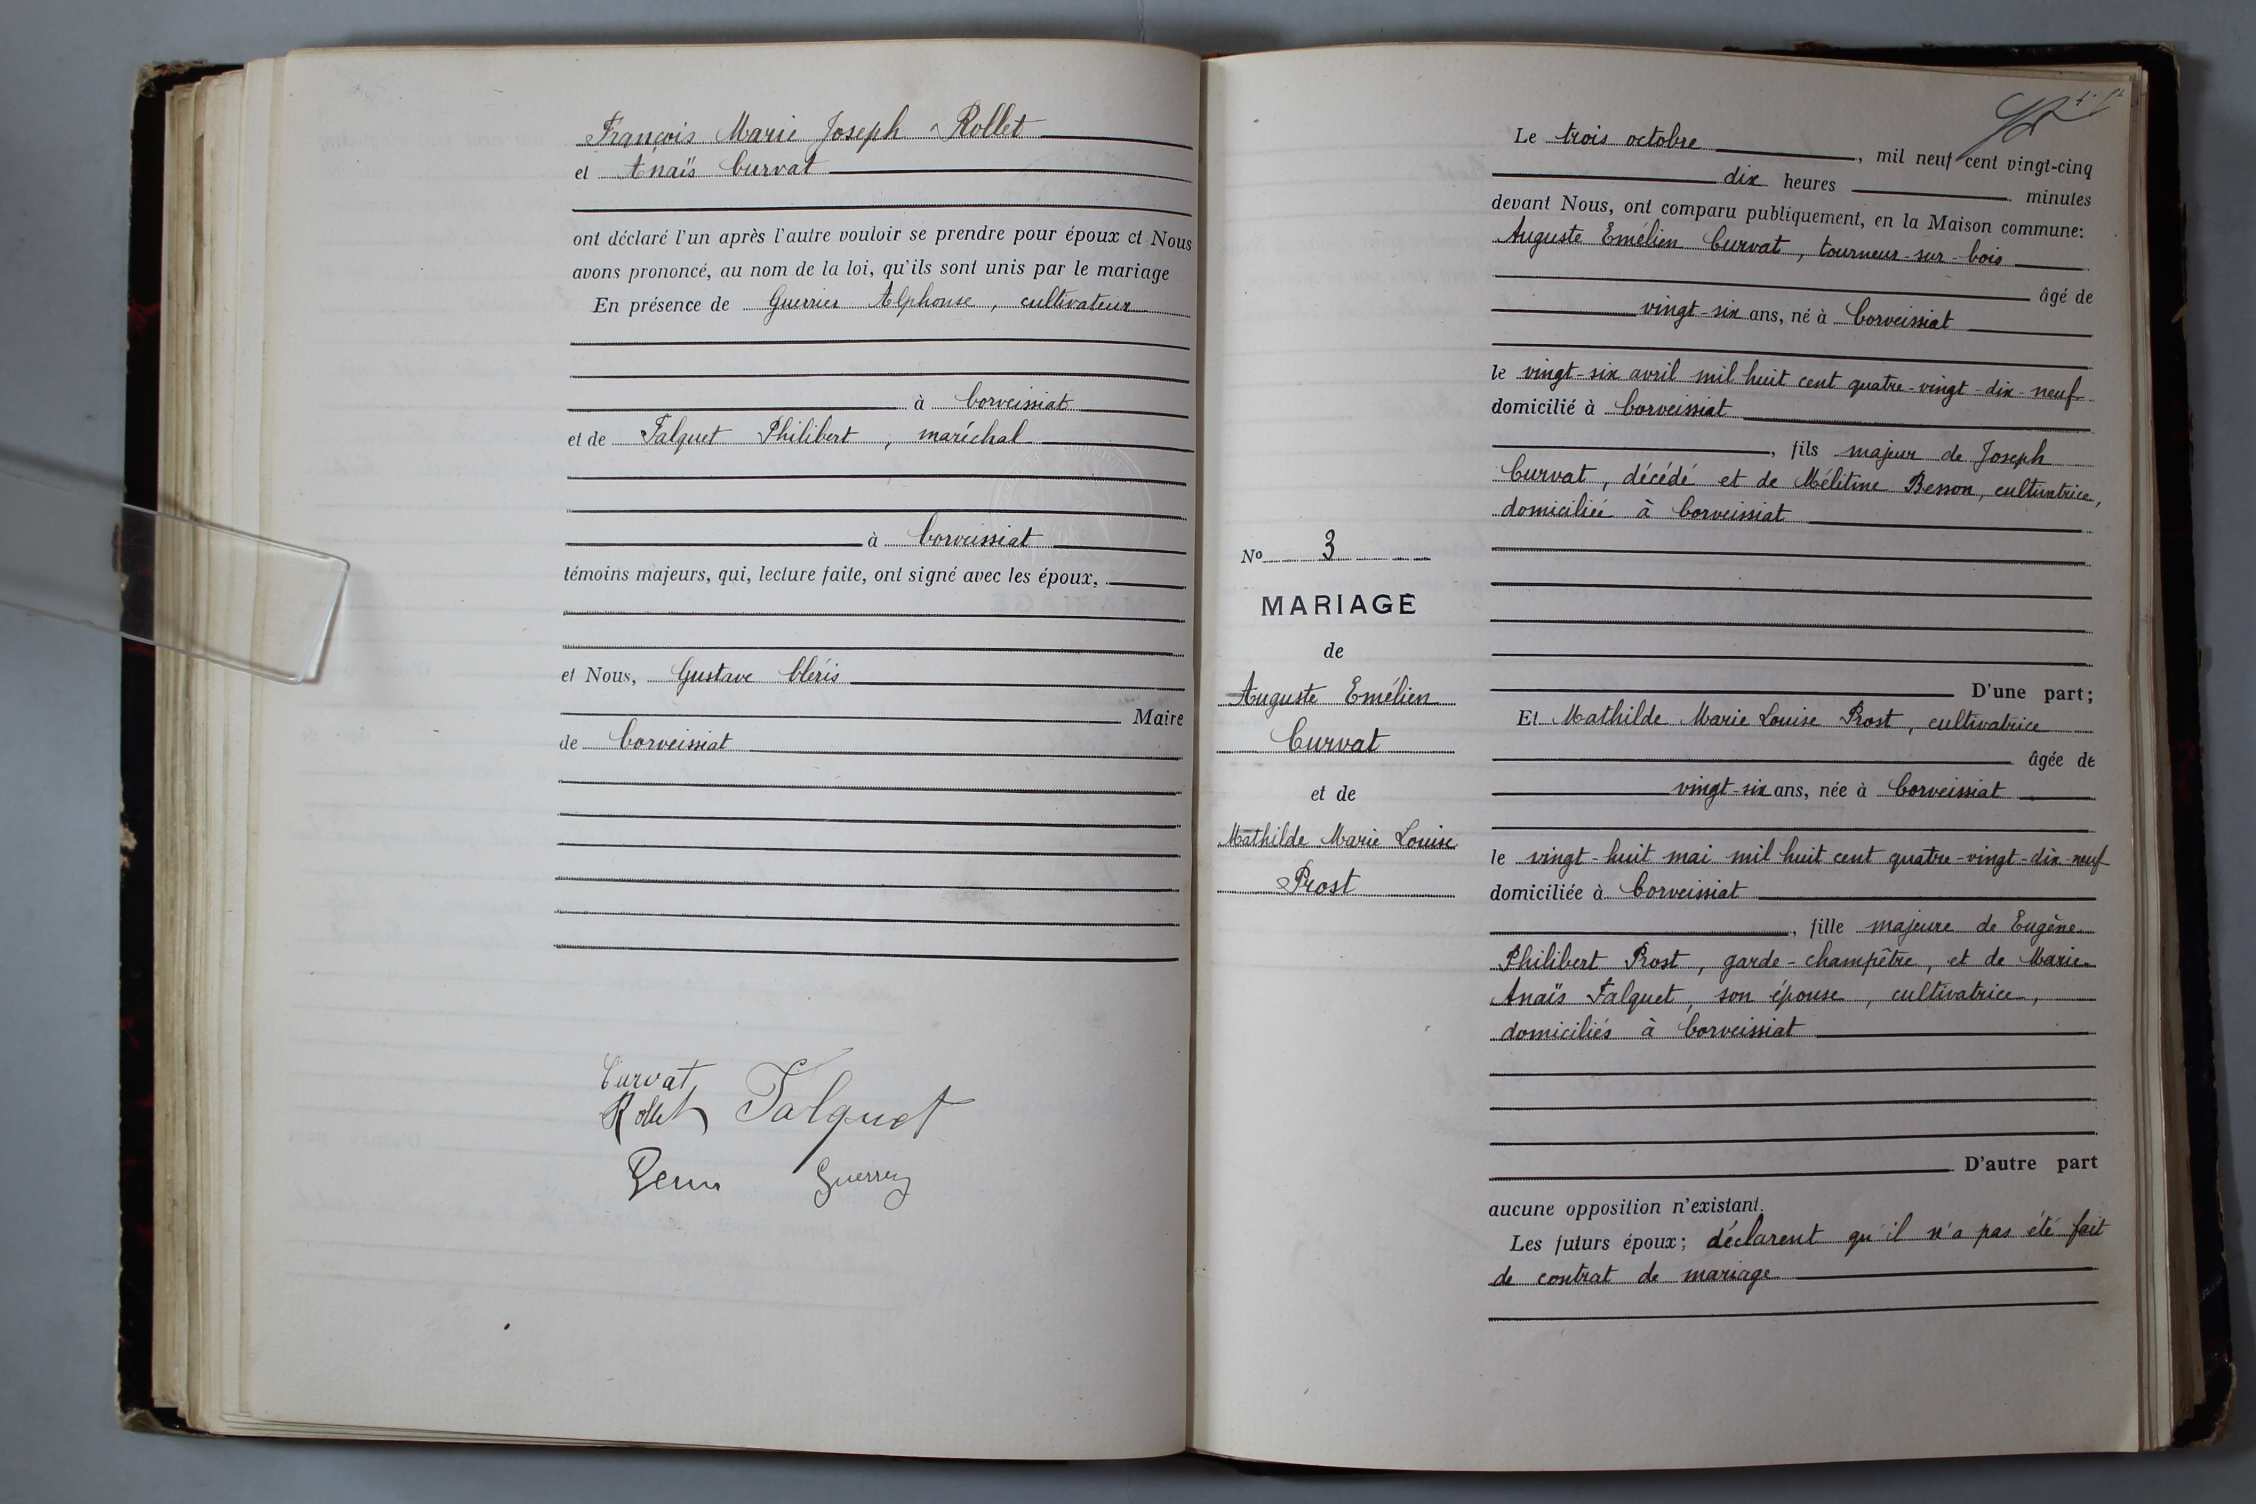 François Marie Joseph Rollet
et Anaïs Curvat
ont déclaré l'un après l'autre vouloir se prendre pour époux et Nous
avons prononcé, au nom de la loi, qu'ils sont unis par le mariage
En présence de Guerrier Alphonse, cultivateur
à Corveissiat
et de Falquet Philibert, maréchal
à Corveissiat
témoins majeurs, qui, lecture faite, ont signé avec les époux,
et Nous, Gustave Cléris
Maire
de Corveissiat
Curvat
Rollet Falquet
Guerrier
Le trois octobre, mil neuf cent vingt-cinq
dix heures minutes
devant Nous, ont comparu publiquement, en la Maison commune:
Auguste Emélien Curvat, tourneur-sur-bois
âgé de
vingt-six ans, né à Corveissiat
le vingt-six avril mil huit cent quatre-vingt-dix-neuf
domicilié à Corveissiat
, fils majeur de Joseph
Curvat, décédé et de Mélitine Besson, cultivatrice,
domiciliée à Corveissiat
D'une part;
Et Mathilde Marie Louise Prost, cultivatrice
âgée de
vingt-six ans, née à Corveissiat
le vingt-huit mai mil huit cent quatre-vingt-dix-neuf
domiciliée à Corveissiat
, fille majeure de Eugène
Philibert Prost, garde-champêtre, et de Marie
Anaïs Falquet, son épouse, cultivatrice,
domiciliés à Corveissiat
D'autre part
aucune opposition n'existant.
Les futurs époux; déclarent qu'il n'a pas été fait
de contrat de mariage
No 3
MARIAGE
de
Auguste Emélien
Curvat
et de
Mathilde Marie Louise
Prost